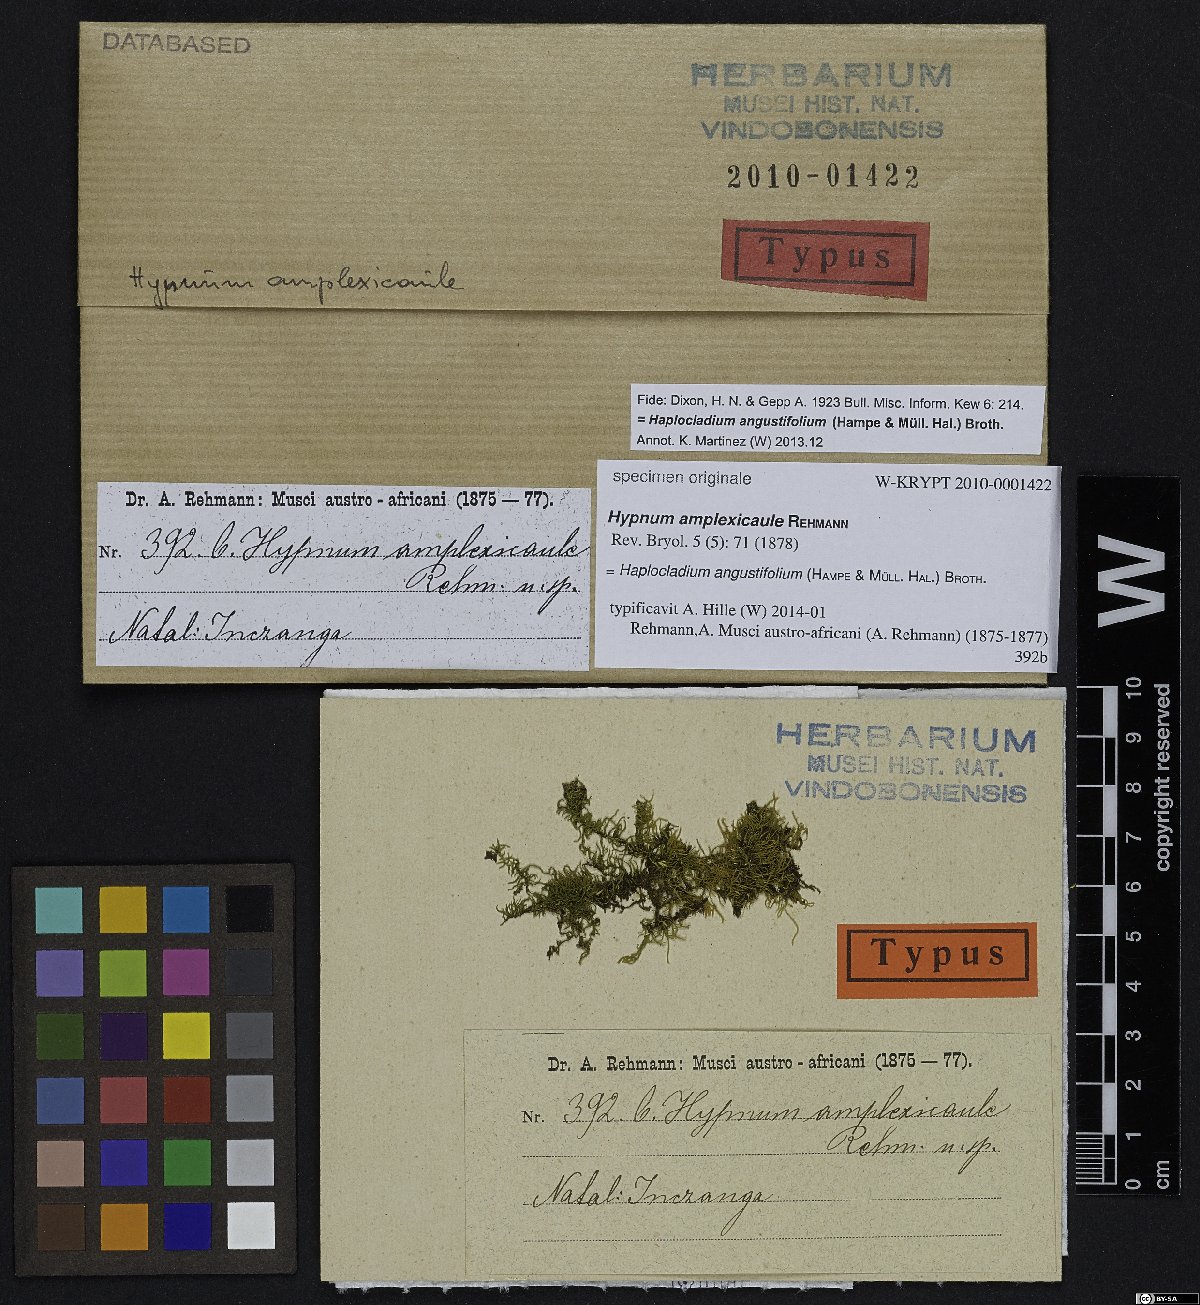 DATABASED
HERBARIUM
MUSEI HIST. NAT.
VINDOBONENSIS
2010-01422
Typus
Hypnum amplexicaule
Fide: Dixon, H. N. & Gepp A. 1923 Bull. Misc. Inform. Kew 6: 214.
= Haplocladium angustifolium (Hampe & Müll. Hal.) Broth.
Annot. K. Martinez (W) 2013.12
Dr. A. Rehmann: Musci austro-africani (1875 — 77).
Nr. 392. b. Hypnum amplexicaule
Rehm. n. sp.
Natal: Inczanga
specimen originale W-KRYPT 2010-0001422
Hypnum amplexicaule REHMANN
Rev. Bryol. 5 (5): 71 (1878)
= Haplocladium angustifolium (HAMPE & MÜLL. HAL.) BROTH.
typificavit A. Hille (W) 2014-01
Rehmann,A. Musci austro-africani (A. Rehmann) (1875-1877)
392b
HERBARIUM
MUSEI HIST. NAT.
VINDOBONENSIS
Typus
Dr. A. Rehmann: Musci austro-africani (1875 — 77).
Nr. 392. b. Hypnum amplexicaule
Rehm. n. sp.
Natal: Inczanga
W
copyright reserved
10
9
8
7
6
5
4
3
2
1
0
cm
cc BY-SA